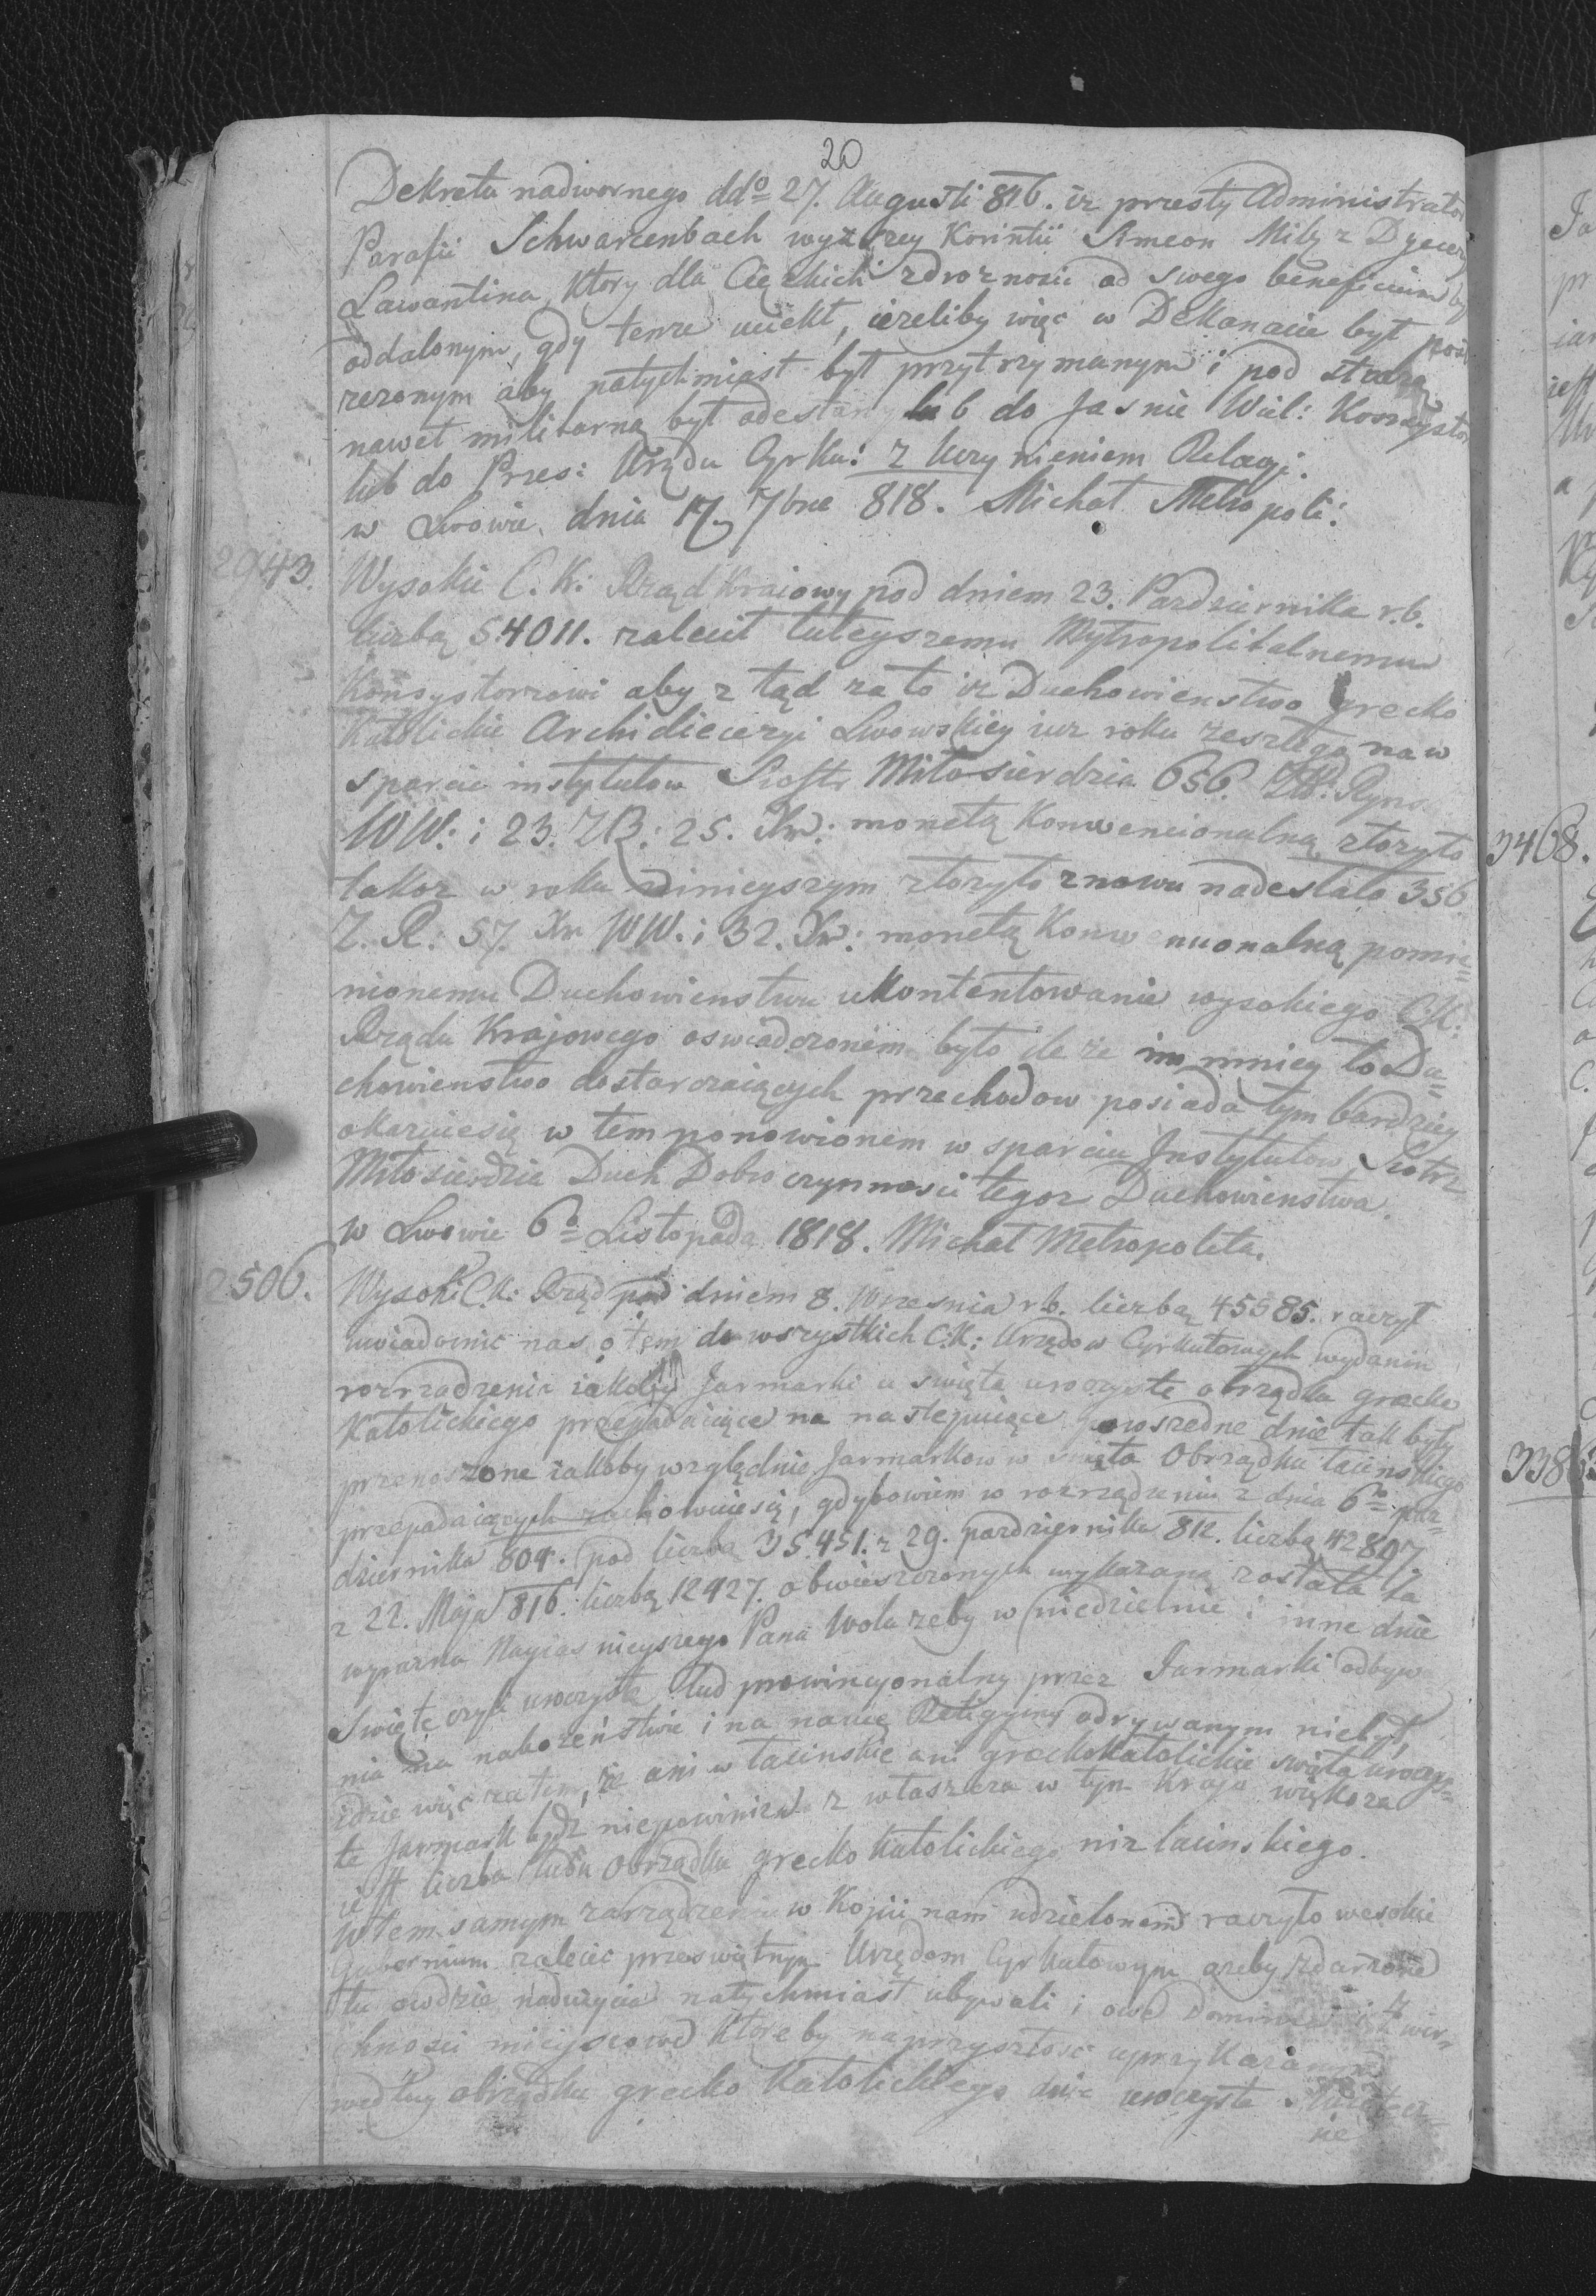 20
Dekretu nadwornego dd͞o 27. Augusti 816. iz przeszły Administrator
Parafii Schwarcenbach wyzszey Korintii Simeon Mily z Dyecezy
Lawantina, ktory dla Cięzkich zdroznosci od swego beneficium by
oddalonym, gdy tenze uciekł, iezeliby więc w Dekanacie był post
rezonym aby natychmiast był przytrzymanym i pod strazą
nawet militarną był odesłany lub do Jasnie Wiel: Konsystor
lub do Pres: Urzędu Cyrku: z Uczynieniem Relacyi.
w Lwowie dnia 17. 7bra 818. Michał Metropoli:
2943. Wysokie C. K: Rząd Kraiowy pod dniem 23. Pazdziernika r. b.
liczbą 54011. zalecił tuteyszemu Mytropolitalnemu
Konsystorzowi aby z tąd za to iz Duchowienstwo grecko
Katolickie Archidiecezyi Lwowskiey iuz roku zeszłego na w
sparcie instytutow Siostr Miłosierdzia 656. ZR: Ryns
WW: i 23. ZR: 25. Xr: monetą Konwencionalną złozyło
takoz w roku ninieyszym złozyło znowu nadesłało 356
Z. R: 57. Xr WW. i 32. Xr: monetą Konwencionalną pomie=
nionemu Duchowienstwu ukontentowanie wysokiego C.K:
Rządu Krajowego oswiadczonem było ile ze im mniey to Du=
chowienstwo dostarczaiących przechodow posiada tym bardziey
okazuiesię w tem ponowionem w sparciu Instytutow Siostr
Miłosierdzia Duch Dobroczynnosci tegoz Duchowienstwa.
w Lwowie 6͞o Listopada 1818. Michał Metropolita.
2506. Wysoki C. K: Rząd pod dniem 8. Wrzesnia r b. liczbą 45585. raczył
uwiadomic nas o tem do wszystkich C:K: Urzędow Cyrkułowych wydanin
rozrządzenia iakoby Jarmarki w święta uroczyste obrządku grecko
Katolickiego przypadaiące na następuiące powszedne dnie tak były
przenoszone iakoby względnie Jarmarkow w święta Obrządku łacinskiego
przepadaiących zachowuiesię, gdybowiem w rozrządzeniu z dnia 6͞o paz=
dziernika 804. pod liczbą 35451. z 29. pazdziernika 812. liczbą 42807
z 22. Maja 816. liczbą 12427. obwieszczonych wykazana została ta
wyrazna Nayias nieyszego Pana Wola zeby w niedzielnie i inne dnie
Swięte czyli uroczyste lud prowincyonalny przez Jarmarki odbywa
nia na nabozeństwie i na naukę Religyiną odrywanym niebył,
idzie więc zatem, ze ani w łacinskie ani grecko Katolickie swięta uroczys=
te Jarmark bydz niepowinien z właszcza w tym Kraju większa
iest liczba ludu Obrządku grecko Katolickiego niz łacinskiego.
W tem samym zarządzeniu w Kopii nam udzielonem raczyło wesokie
Gubernium zalecic przeswiętnym Urzędom Cyrkułowym azeby zdarzone
tu owdzie naduzycia natychmiast ubywali i owe Dominia i Zwier
chnosci mieyscowe ktoreby naprzyszłosc uprzykazanne
według obrządku grecko Katolickiego dnie uroczyste
nie
3468.